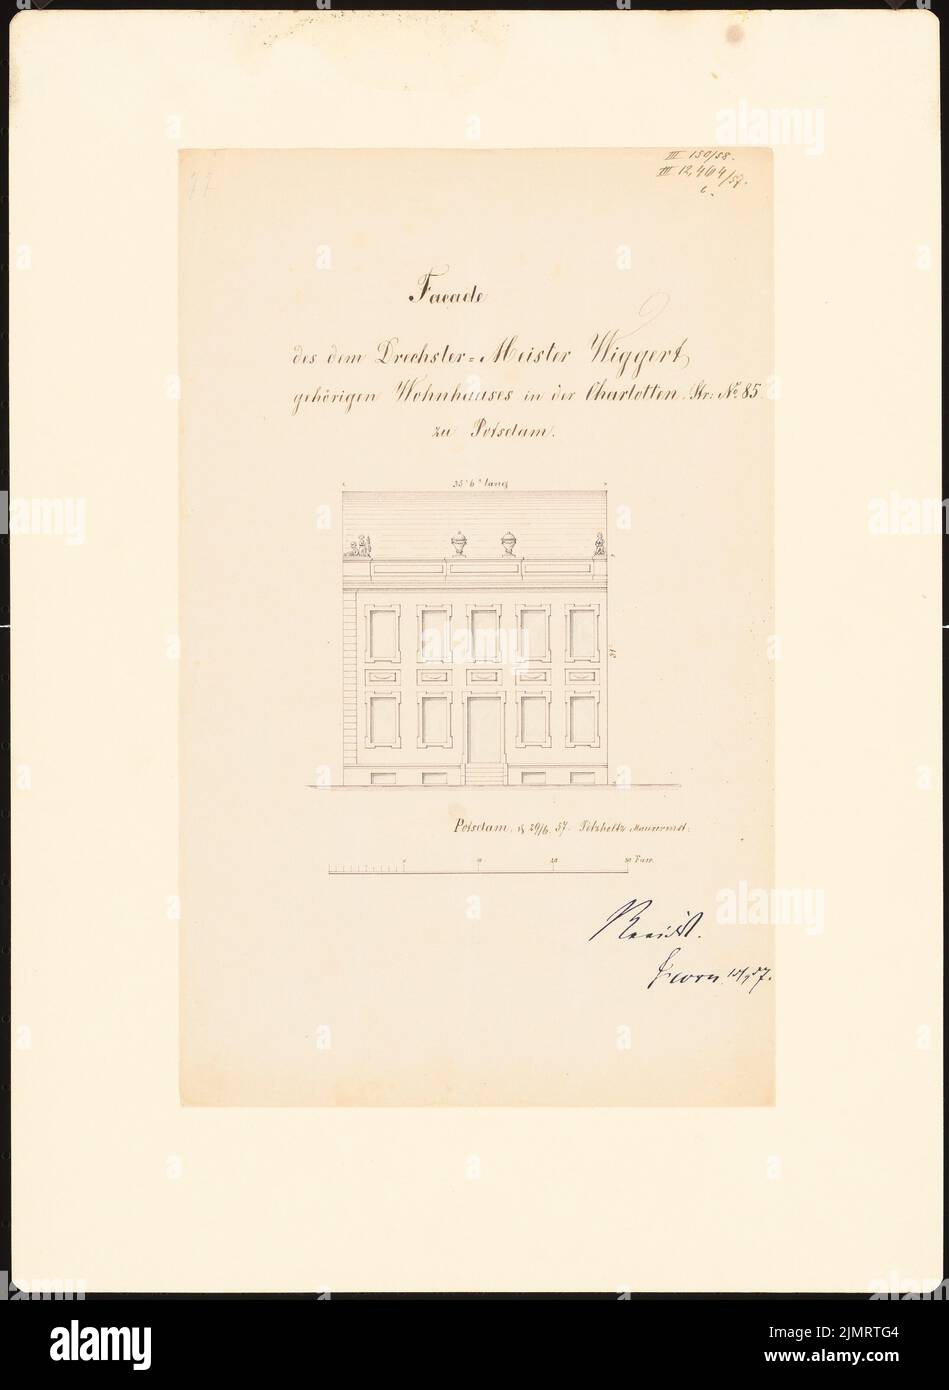 III 150/58.
III 12,464/57.
c.
Façade
des dem Drechsler=Meister Wiggert
gehörigen Wohnhauses in der Charlotten. Str: No. 85.
zu Potsdam.
35' 6" lang
31
Potsdam, d 29/6. 57. Petzholtz Maurermst:
50 Fuss.
15/7 57.
alamy
Image ID: 2JMRTG4
www.alamy.com